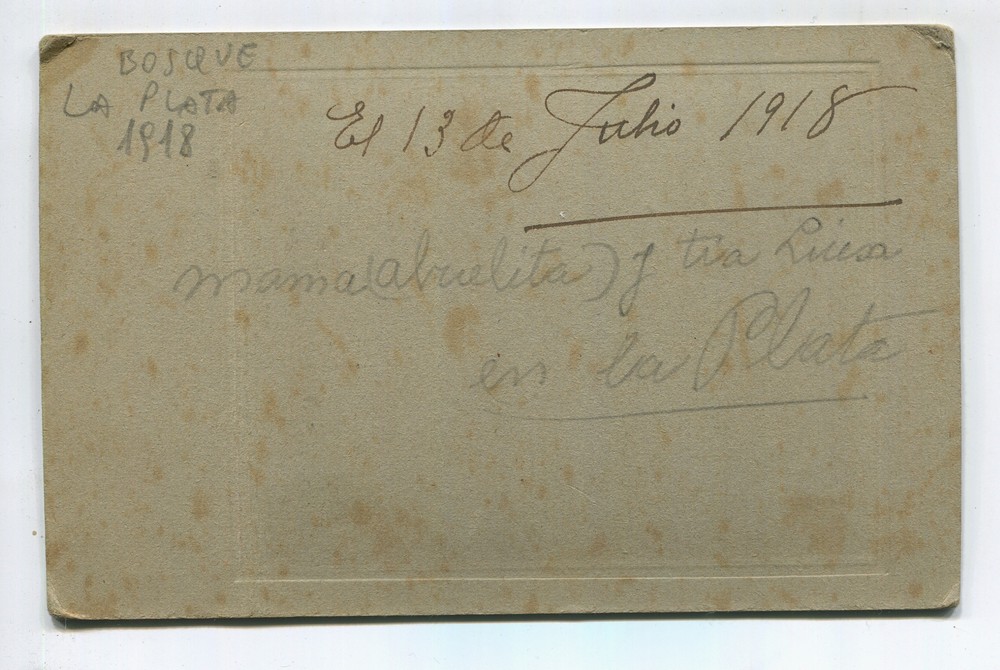 BOSQUE
LA PLATA
1918
El 13 de Julio 1918
mama (abuelita) y tia Luisa
en la Plata